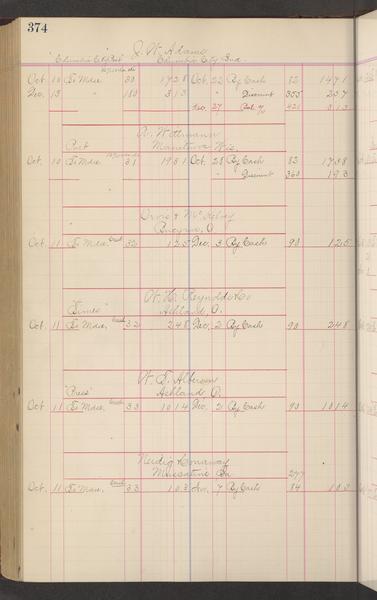 374
J. W. Adams
"Columbia City Post" Columbia City Ind.
Oct. 10 To Mdse. 30 1728 Oct. 22 By Cash 82 1471
Nov. 13 " 180 313 " Discount 355 257
Nov. 27 Bal. 421 313
A. Wittmann
Post Manitowoc Wis.
Oct. 10 To Mdse. 31 1931 Oct. 28 By Cash 82 1738
" Discount 360 193
Bucyrus, O
Oct. 11 To Mdse. 32 125 Nov. 3 By Cash 90 125
W. H. Reynolds & Co
"Times" Ashland, O.
Oct. 11 To Mdse. 32 248 Nov. 2 By Cash 90 248
W. S. Alberson
"Press" Ashland O.
Oct. 11 To Mdse. 33 1014 Nov. 2 By Cash 90 1014
Neidig & Conaway
Muscatine Ia 277
Oct. 11 To Mdse. 33 103 7 By Cash 84 103